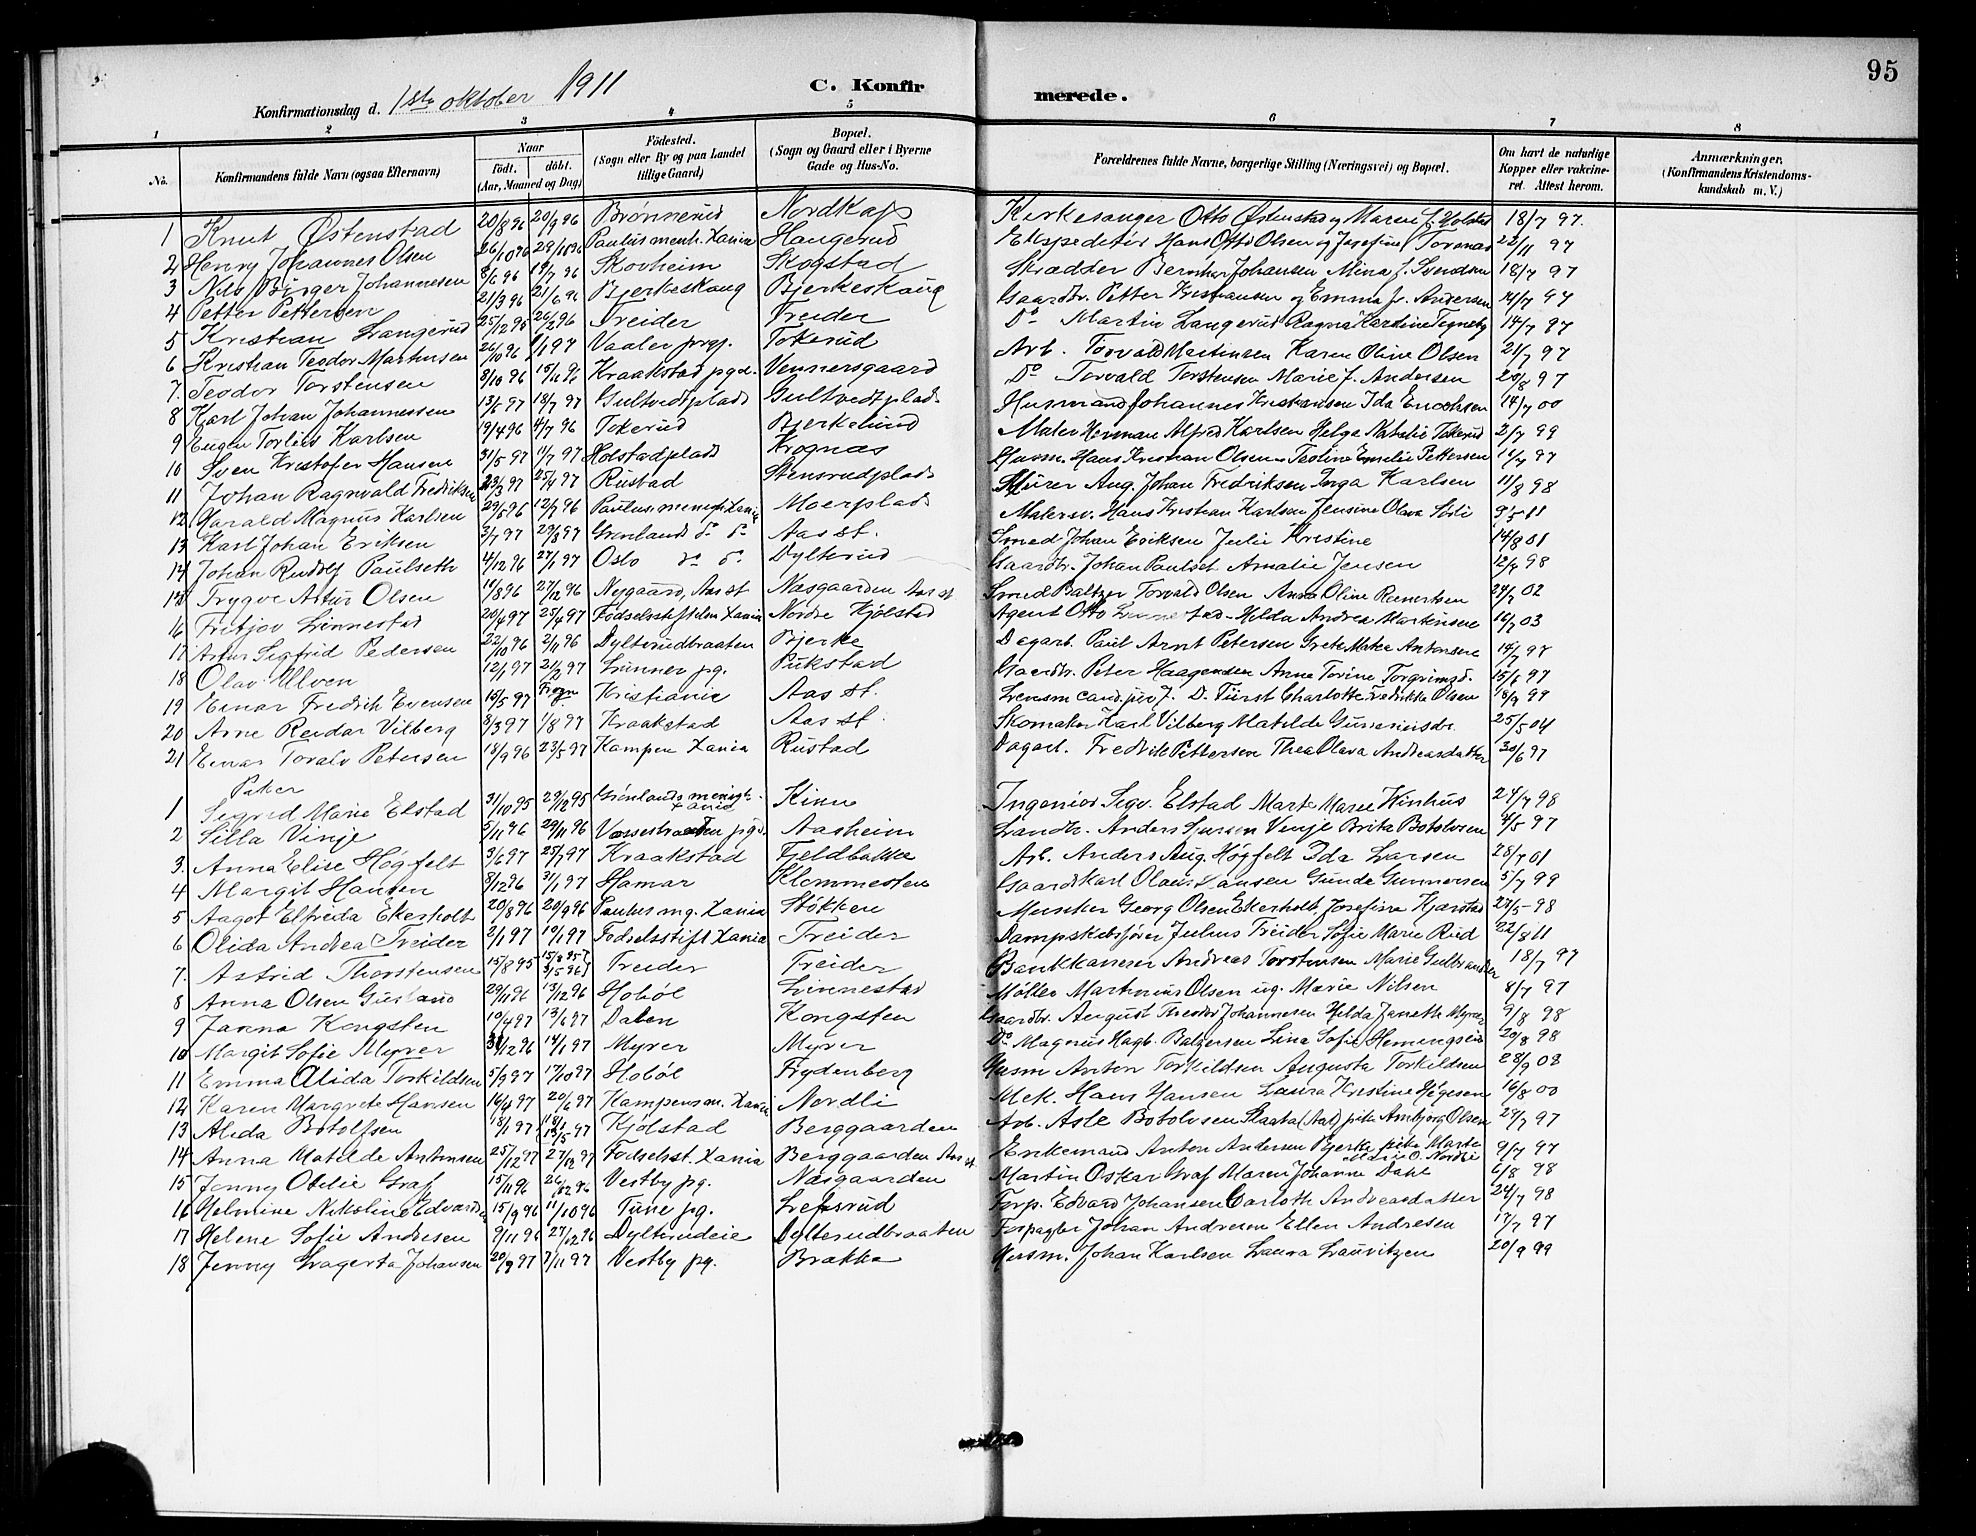 95
Konfirmationsdag d. 1ste oktober 1911
C. Konfirmerede.
1 2 3 4 5 6 7 8
No. Konfirmandens fulde Navn (ogsaa Efternavn) Naar født. døbt. (Aar, Maaned og Dag) Fødested. (Sogn eller By og paa Landet tillige Gaard) Bopæl. (Sogn og Gaard eller i Byerne Gade og Hus-No. Forældrenes fulde Navne, borgerlige Stilling (Næringsvei) og Bopæl. Om havt de naturlige Kopper eller vakcineret. Attest herom. Anmærkninger. (Konfirmandens Kristendomskundskab m. V.)
1 Knut Østenstad 20/8 96 20/9 96 Brønnerud Nordkap Kirkesanger Otto Østenstad og Maren f. Holstad 18/7 97.
2 Henry Johannes Olsen 26/10 96 29/10 96 Paulus menh. Xania Haugerud Ekspeditør Hans Otto Olsen og Josefine Torsnas 22/11 97
3 Nils Birger Johannesen 8/6 96 19/7 96 Skovheim Skogstad Skrædder Bernhar Johansen Mina f. Svendsen 18/7 97
4 Petter Pettersen 21/3 96 21/6 96 Bjerkeskaug Bjerkeskaug Gaardbr. Petter Kristiansen og Emma f. Andersen 14/7 97
5 Kristian Langerud 25/12 95 26/2 96 Treider Treider Do Martin Langerud Ragna Kardine Tegneby 14/7 97
6 Kristian Teodor Martinsen 26/10 96 1/1 97 Vaaler prgj. Tokerud Arb. Torvald Martinsen Karen Oline Olsen 21/7 97
7. Teodor Torstensen 8/10 96 15/11 96 Kraakstad pgd. Vennersgaard Do Torvald Torstensen Marie f. Andersen 20/8 97
8 Karl Johan Johannessen 13/6 97 18/7 97 Gultvedtplads Gultvedtplads Husmand Johannes Kristiansen Ida Enochsen 14/7 00
9 Eugen Torleis Karlsen 19/4 96 4/7 96 Tokerud Bjerkelund Maler Herman Alfred Karlsen Helga Natalie Tokerud 2/7 99
10 Sven Kristofer Hansen 31/5 97 11/7 97 Holstadplads Krognas Husm. Hans Kristian Olsen Teoline Emelie Pettersen 14/7 97
11 Johan Ragnvald Fredriksen 23/3 97 25/4 97 Rustad Stensrudplads Murer Aug. Johan Fredriksen Inga Karlsen 11/8 98
12 Harald Magnus Karlsen 29/5 96 12/7 96 Paulus menigh. Xania Moerplads Malersv. Hans Kristian Karlsen Jensine Olava Sørli 9/5 11
13 Karl Johan Eriksen 3/7 97 29/8 97 Grønlands do do Aas st. Smed Johan Eriksen Julie Kristine 14/8 01
14 Johan Rudolf Paulseth 4/12 96 27/1 97 Oslo do do Dylterud Gaardbr. Johan Paulset Amalie Jensen 12/7 98
15 Trygve Artur Olsen 19/8 96 27/12 96 Nygaard, Aas st Nasgaarden Aas st Smed Baltzer Torvald Olsen Anna Oline Reinertsen 24/7 02
16 Fritjov Linnestad 20/4 97 25/4 97 Fødselsstiftelsen Xania Nordre Kjølstad Agent Otto Linnestad Hilda Andrea Martinsen 16/7 03
17 Artur Sigfrid Pedersen 22/10 96 2/11 96 Dylterudbraaten Bjerke Dagarb. Paul Arnt Petersen Grete Matea Antonsen 14/7 97
18 Olav Ulven 12/1 97 21/2 97 Lunner pg. Pukstad Gaardbr. Peter Haagensen Anne Torine Torgrimsd. 15/6 97
19 Einar Fredrik Evensen 15/5 97 Frogn Kristiania Aas st. Lensm. cand. jur. J. D. Fürst Charlotte Fredrikke Olsen 18/9 99
20 Arne Reidar Vilberg 8/3 97 1/8 97 Kraakstad Aas st. Skomaker Karl Vilberg Matilde 25/5 04
21 Einar Toralv Petersen 18/9 96 23/5 97 Kampen Xania Rustad Dagarb. Fredrik Pettersen Thea Olava Andreasdatter 30/6 97
Piker
1 Sigrid Marie Elstad 31/10 95 29/12 95 Grønlands menigh. Xania Kinn Ingeniør Sigv. Elstad Marte Marie Kinhus 24/7 98
2 Silla Vinje 5/11 96 29/11 96 Vossestranden pgd. Aasheim Landh. Anders Sjursen Vinje Brita Botolvsen 4/5 97
3. Anna Elise Høgfelt 3/6 97 25/7 97 Kraakstad Fjeldbakke Arb. Anders Aug. Høgfelt Ida Larsen 28/7 01
4 Margit Hansen 8/12 96 31/1 97 Hamar Klommesten Gaardb. Karl Olaus Hansen Gunda Gunnersen 5/7 99
5 Aagot Elfreda Ekerholt 20/8 96 20/9 96 Paulus mg. Xania Støkken Musiker Georg Olsen Ekerholt, Josefine Kjærstad 27/5 98
6 Olida Andrea Treider 2/1 97 10/1 97 Fødselsstift Xania Treider Dampskibsfører Julius Treider Sofie Marie Ried 22/8 11
7. Astrid Thorstensen 15/8 95 15/8 95 3/5 96 Treider Treider Bankkasserer Andreas Torstensen Marie Gulbrandsen 18/7 97
8 Anna Olsen 29/11 96 13/12 96 Hobøl Linnestad Møller Martinius Olsen ug. Marie Nilsen 8/7 97
9 Janna Kongsten 10/4 97 13/6 97 Dalen Kongsten Gaardbr. August Theodor Johannesen Hilda Janeth Myrer 9/8 98
10 Margit Sofie Myrer 31/12 96 14/1 97 Myrer Myrer Do Magnus Hagb. Baltzersen Lina Sofie Hemingsen 20/8 98
11 Emma Alida Torkildsen 5/9 97 17/10 97 Hobøl Frydenberg Husm Anton Torkildsen Augusta Torkildsen 28/9 08
12 Karen Margrete Hansen 16/4 97 20/6 97 Kampens m. Xania Nordli Mek. Hans Hansen Laura Kristine Høgesen 16/8 00
13 Alida Botolfsen 18/1 97 18/1 12/5 97 Kjølstad Berggaarden Arb. Asle Botolvsen Skaata (Aad) pike Ambjørg Olsen 27/7 97
14 Anna Matilde Antonsen 25/12 97 27/12 97 Fødselsst. Xania Berggaarden Aas st Enkemand Anton Andersen Bjerke pike Marte Olava O. Nordlie 9/7 97
15 Jenny Otelie Graf 15/11 96 26/12 96 Vestby pg. Nasgaarden Martin Oskar Graf Maren Johanne Dahl 6/8 98
16 Helmine Nikoline Edvardsen 15/9 96 11/10 96 Tune pg. Lepsrud Forp. Edvard Johansen Carloth Andreasdatter 24/7 98
17 Helene Sofie Andresen 9/11 96 27/12 96 Dylterudeie Dylterudbraaten Forpagter Johan Andresen Ellen Andresen 17/7 97
18 Jenny Lagerta Johansen 20/9 97 7/11 97 Vestby pg. Brakka Husm. Johan Karlsen Laura Lauvitzen 20/9 99